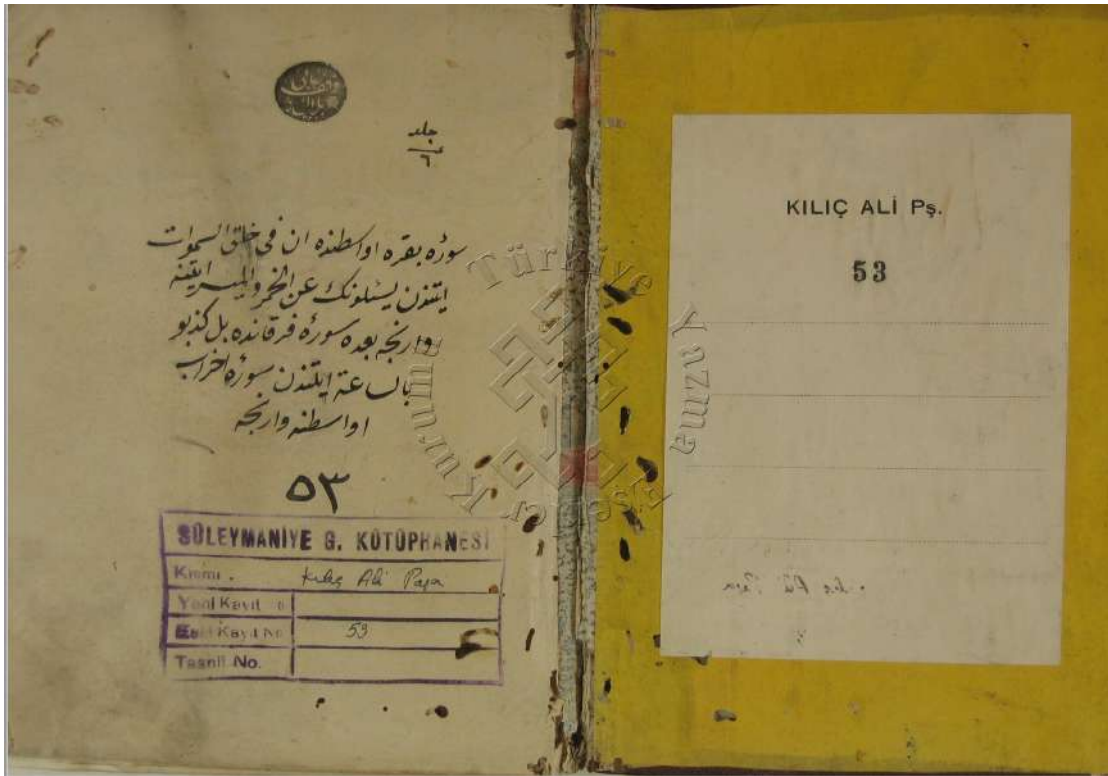 جلد
٦
سورۀ بقره اواسطنده ان فی خلق السموات
ایتندن یسئلونک عن الخمر والمیسر ایتنه
وارنجه بعده سورۀ فرقانده بل کذبو
بالساعة ایتندن سورۀ احزاب
اواسطنه وارنجه
٥٣
SÜLEYMANİYE G. KÜTÜPHANESİ
Kısmı. Kılıç Ali Paşa
Yeni Kayıt No
Eski Kayıt No 53
Tasnif No.
KILIÇ ALİ Pş.
53
Türkiye Yazma Eserler Kurumu